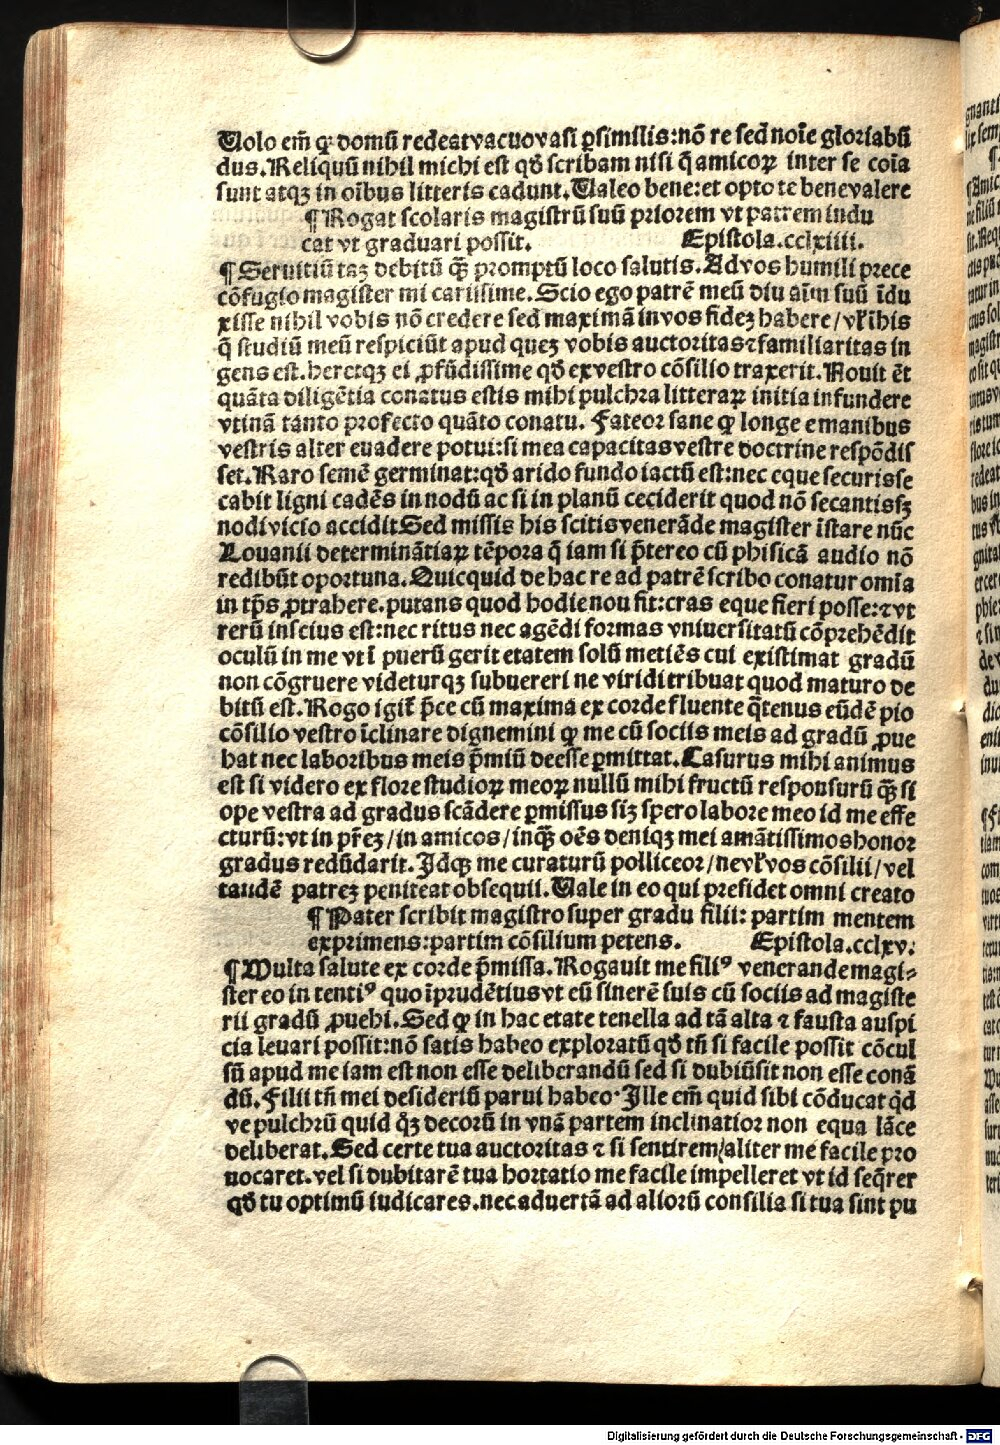 Uolo em̄ ꝙ domū redeat vacuo vasi ꝑsimilis: nō re sed noīe gloriabū
dus. Reliquū nihil michi est qđ scribam nisi q̄ amicoꝝ inter se coīa
sunt atqꝫ in oībus litteris cadunt. Ualeo bene: et opto te benevalere
¶ Rogat scolaris magistrū suū priorem vt patrem indu
cat vt graduari possit. Epistola.cclxiiii.
¶ Seruitiū taꝫ debitū q̄ꝫ promptū loco salutis. Ad vos humili prece
cōfugio magister mi carissime. Scio ego patrē meū diu aīm suū īdu
xisse nihil vobis nō credere sed maximā in vos fideꝫ habere / vł‘ī his
q̄ studiū meū respiciūt apud queꝫ vobis auctoritas ⁊ familiaritas in
gens est. heretqꝫ ei ꝓfūdissime qđ ex vestro cōsilio traxerit. Nouit ēt
quāta diligētia conatus estis mihi pulchra litteraꝝ initia infundere
vtinā tanto profecto quāto conatu. Fateor sane ꝙ longe e manibus
vestris alter euadere potui: si mea capacitas vestre doctrine respōdis
set. Raro semē germinat: qđ arido fundo iactū est: nec eque securis se
cabit ligni cadēs in nodū ac si in planū ceciderit quod nō secantis sꝫ
nodi vicio accidit Sed missis his scitis venerāde magister īstare nūc
Louanii determināтiaꝝ tēpora q̄ iam si p̄tereo cū phisicā audio nō
redibūt oportuna. Quicquid de hac re ad patrē scribo conatur omīa
in tp̄s ꝓtrahere. putans quod hodie nou fit: cras eque fieri posse: ⁊ vt
rerū inscius est: nec ritus nec agēdi formas vniuersitatū cōprehēdit
oculū in me vt ī puerū gerit etatem solū metiēs cui existimat gradū
non cōgruere videturqꝫ subuereri ne viridi tribuat quod maturo de
bitū est. Rogo igiť p̄ce cū maxima ex corde fluente q̄tenus eūdē pio
cōsilio vestro īclinare dignemini ꝙ me cū sociis meis ad gradū ꝓue
hat nec laboribus meis p̄miū deesse ꝑmittat. Casurus mihi animus
est si videro ex flore studioꝝ meoꝝ nullū mihi fructū responsurū q̄ꝫ si
ope vestra ad gradus scādere ꝑmissus siꝫ spero labore meo id me effe
cturū: vt in pr̄eꝫ / in amicos / inq̄ꝫ oēs deniqꝫ mei amātissimos honor
gradus redūdarit. Idqꝫ me curaturū polliceor / ne vł‘ vos cōsilii / vel
taudē patreꝫ peniteat obsequii. Uale in eo qui presidet omni creato
¶ Pater scribit magistro super gradu filii: partim mentem
exprimens: partim cōsilium petens. Epistola.cclxv.
¶ Multa salute ex corde p̄missa. Rogauit me filiꝰ venerande magi⸗
ster eo in tentiꝰ quo īprudētius vt eū sinerē suis cū sociis ad magiste
rii gradū ꝓuehi. Sed ꝙ in hac etate tenella ad tā alta ⁊ fausta auspi
cia leuari possit: nō satis habeo exploratū qđ tn̄ si facile possit cōcul
sū apud me iam est non esse deliberandū sed si dubiū sit non esse conā
dū. Filii tn̄ mei desideriū parui habeo. Ille em̄ quid sibi cōducat q̇d
ve pulchrū quid qꝫ decorū in vnā partem inclinatior non equa lāce
deliberat. Sed certe tua auctoritas ⁊ si sentirem / aliter me facile pro
uocaret. vel si dubitarē tua hortatio me facile impelleret vt id seq̄rer
qđ tu optimū iudicares. nec aduertā ad aliorū consilia si tua sint pu
Digitalisierung gefördert durch die Deutsche Forschungsgemeinschaft - DFG